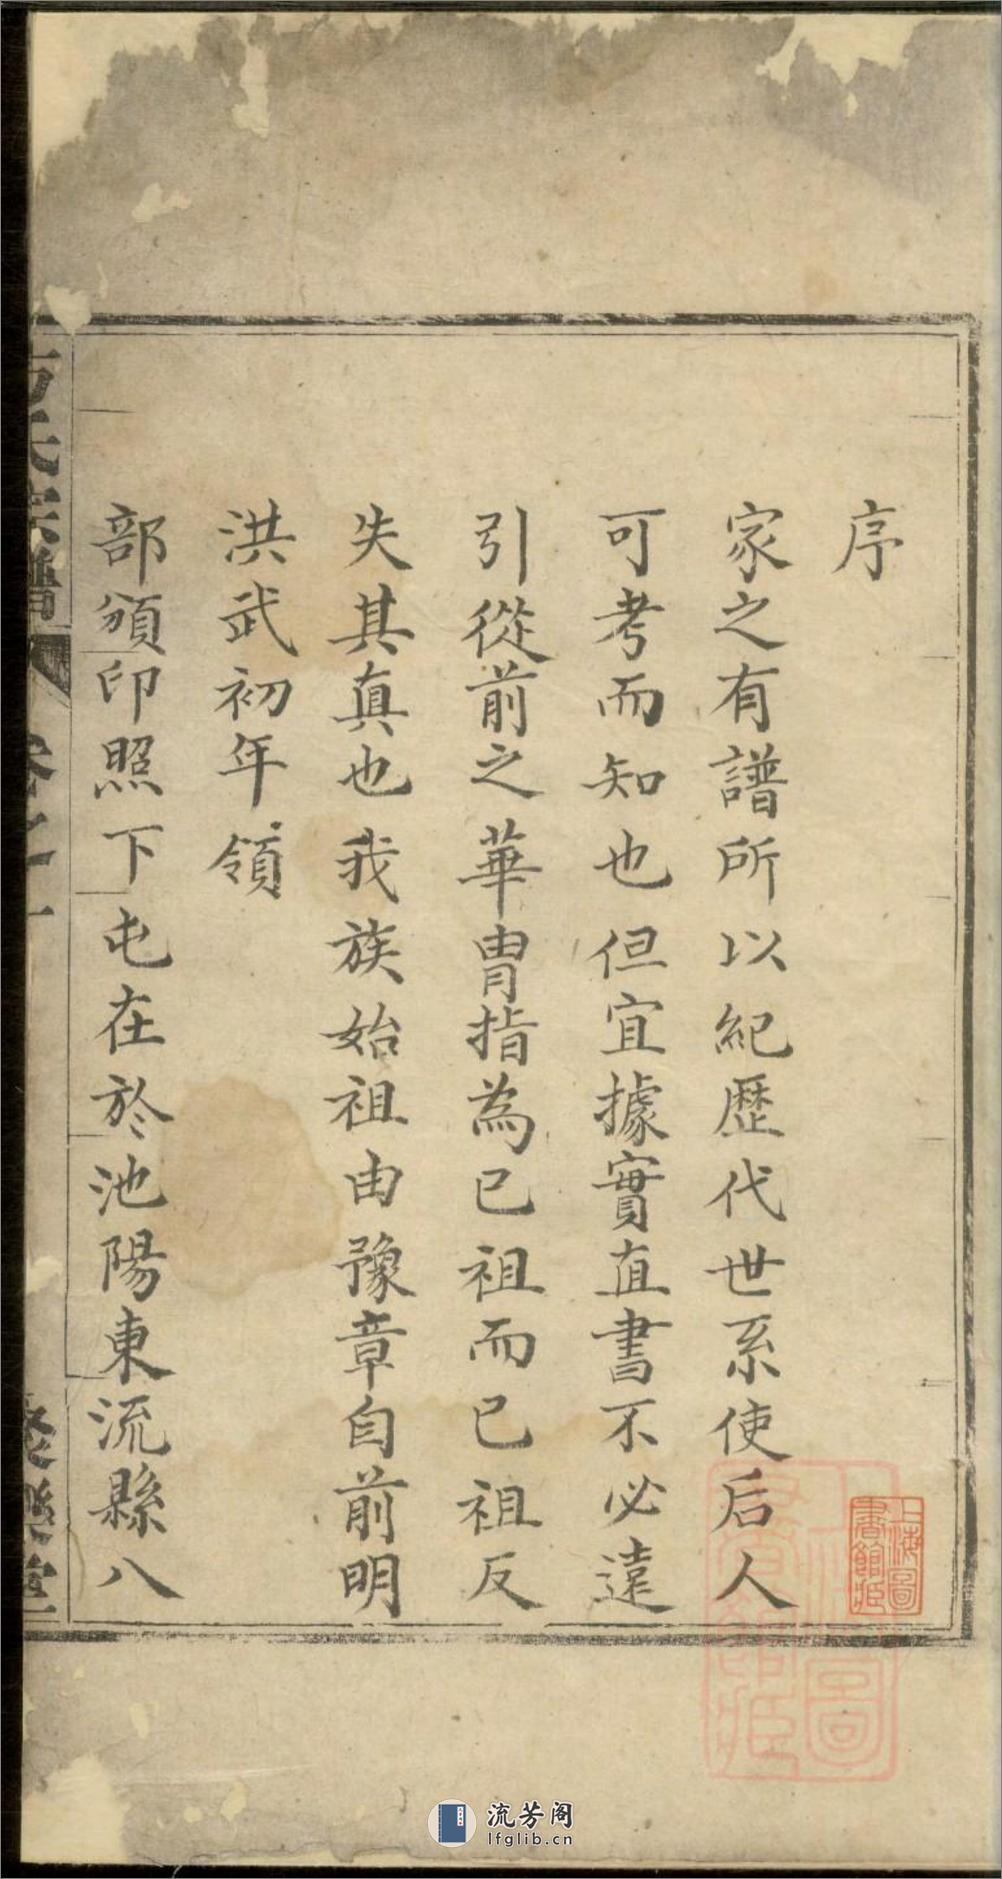 序
家之有譜所以紀歷代世系使后人
可考而知也但宜據實直書不必遠
引從前之華胄指為已祖而已祖反
失其真也我族始祖由豫章自前明
洪武初年領
部頒印照下屯在於池陽東流縣八
氏族譜
卷之一
樂堂
上海圖書館藏
流芳阁
lfglib.cn